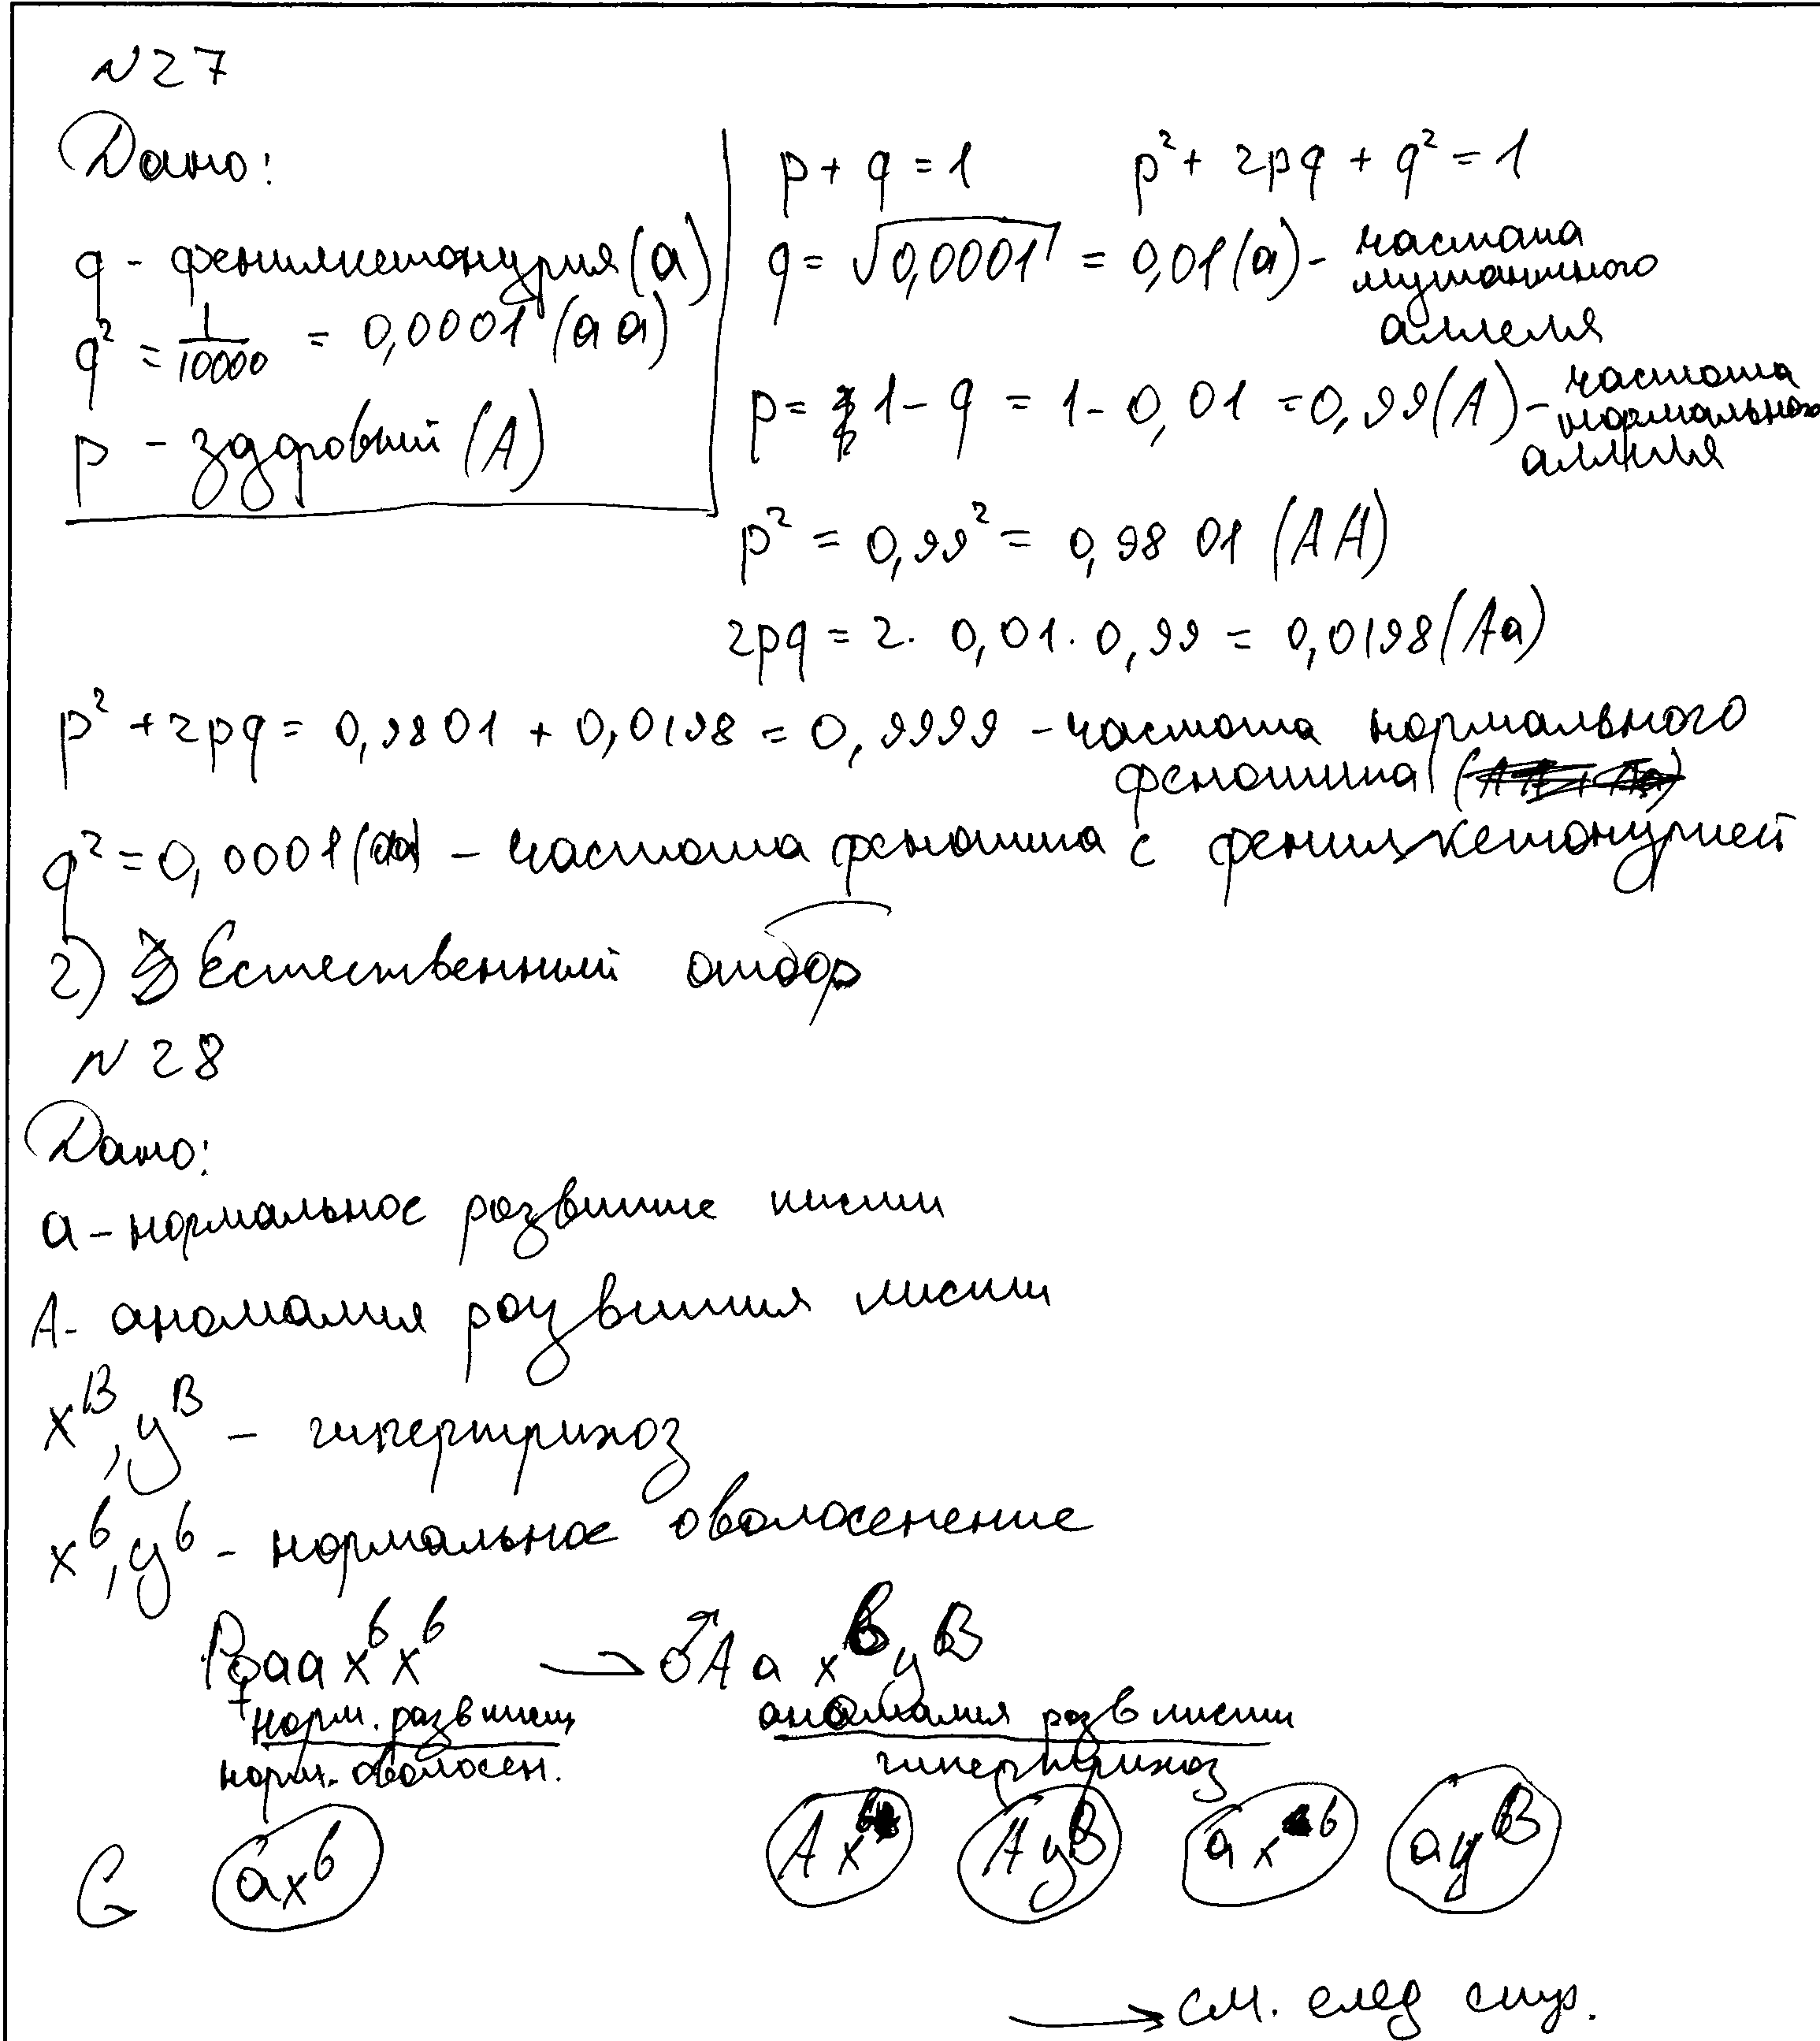 N27
Дано:
q - фенилкетонурия (a)
q² = 1/10000 = 0,0001 (aa)
p - здоровый (A)
p + q = 1 p² + 2pq + q² = 1
q = √0,0001 = 0,01 (a) - частота
мутантного
аллеля
p = 1 - q = 1 - 0,01 = 0,99 (A) - частота
нормального
аллеля
p² = 0,99² = 0,9801 (AA)
2pq = 2 · 0,01 · 0,99 = 0,0198 (Aa)
p² + 2pq = 0,9801 + 0,0198 = 0,9999 - частота нормального
фенотипа
q² = 0,0001 (aa) - частота фенотипа с фенилкетонурией
2) Естественный отбор
N 28
Дано:
a - нормальное развитие кисти
A - аномалия развития кисти
x^B, y^B - гипертрихоз
x^b, y^b - нормальное оволосенение
P ♀aa x^b x^b → ♂Aa x^b y^B
норм. разв кисти аномалия разв кисти
норм. оволосен. гипертрихоз
G ax^b Ax^b Ay^B ax^b ay^B
→ см. след стр.